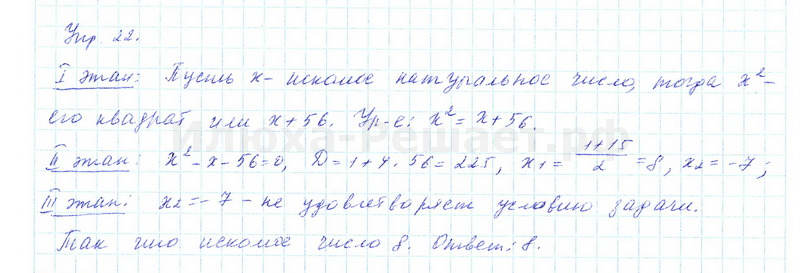 Упр. 22.
I этап: Пусть x - искомое натуральное число, тогда x² -
его квадрат или x + 56. Ур-е: x² = x + 56.
Илюха-Решает.рф
II этап: x² - x - 56 = 0, D = 1 + 4 · 56 = 225, x₁ = (1+15)/2 = 8, x₂ = -7;
III этап: x₂ = -7 - не удовлетворяет условию задачи.
Так что искомое число 8. Ответ: 8.